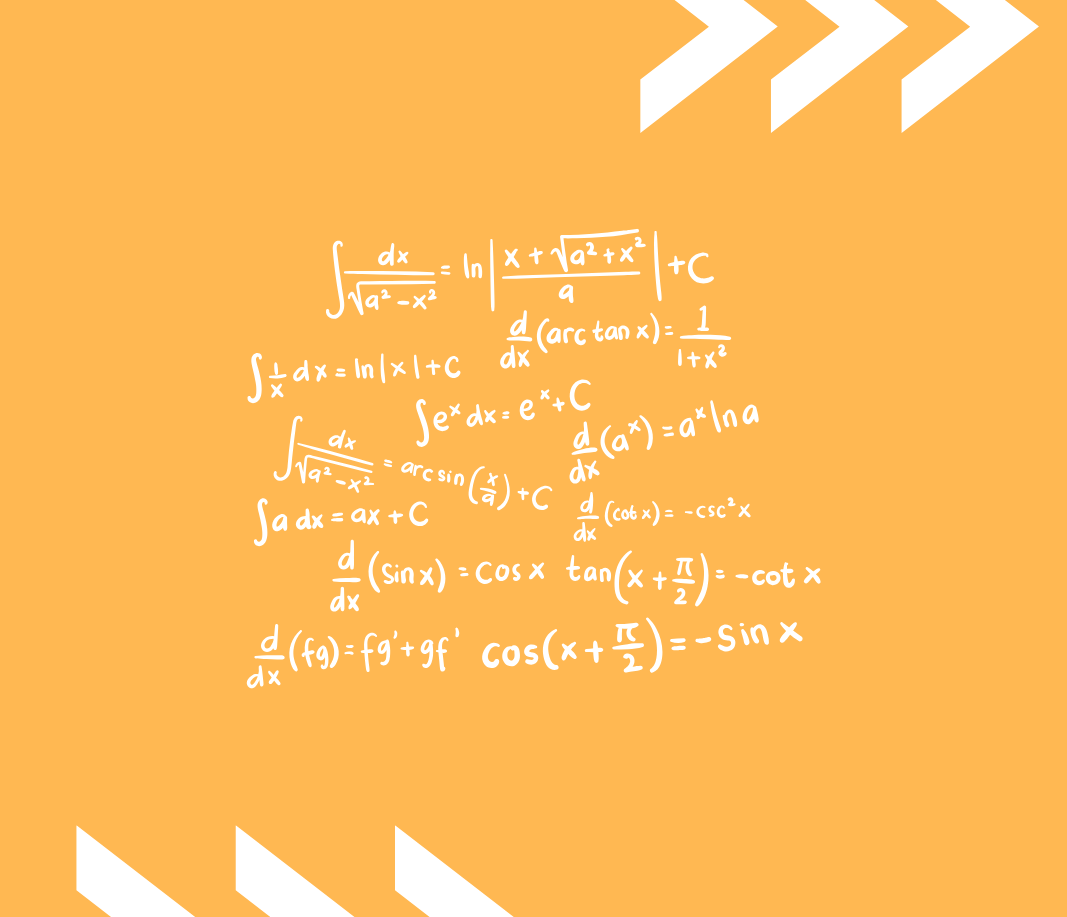 ∫ dx/√(a² − x²) = ln | (x + √(a² + x²))/a | + C
d/dx (arc tan x) = 1/(1 + x²)
∫ 1/x dx = ln | x | + C
∫ eˣ dx = eˣ + C
d/dx (aˣ) = aˣ ln a
∫ dx/√(a² − x²) = arc sin (x/a) + C
∫ a dx = ax + C
d/dx (cot x) = -csc² x
d/dx (sin x) = cos x
tan(x + π/2) = -cot x
d/dx (fg) = fg' + gf'
cos(x + π/2) = -sin x